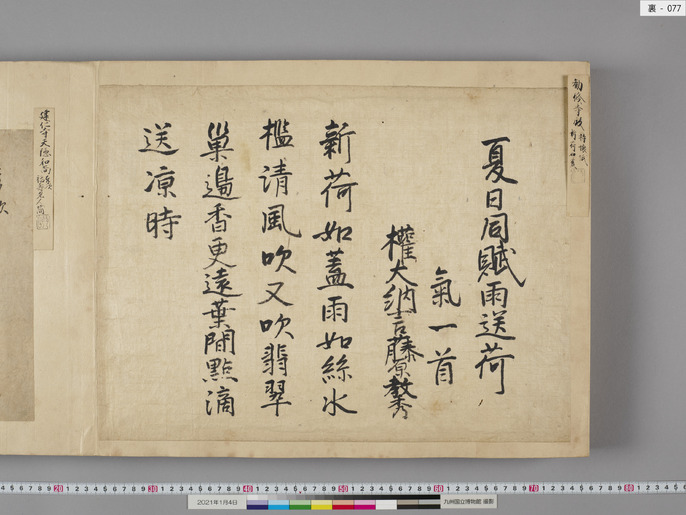 裏 - 077
夏日同賦雨送荷
氣一首
權大納言藤原教秀
新荷如蓋雨如絲水
檻清風吹又吹翡翠
巢邊香更遠葉間點滴
送凉時
建仁寺天隱和尚
2021年1月4日
九州国立博物館 撮影